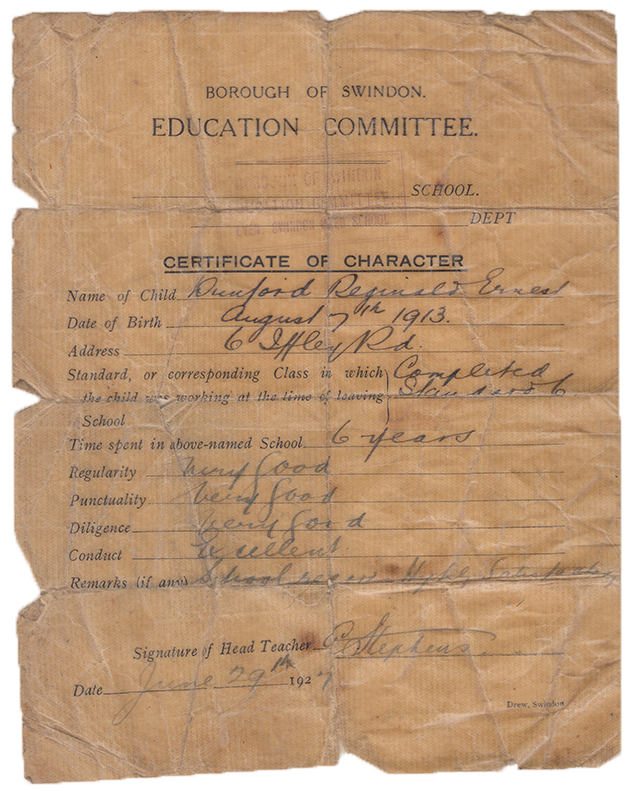 BOROUGH OF SWINDON.
EDUCATION COMMITTEE.
BOROUGH OF SWINDON
EDUCATION COMMITTEE
SWINDON SCHOOL
SCHOOL.
DEPT
CERTIFICATE OF CHARACTER
Name of Child Dunford Reginald Ernest
Date of Birth August 7th 1913.
Address 6 Iffley Rd.
Standard, or corresponding Class in which Completed
the child was working at the time of leaving Standard 6
School
Time spent in above-named School 6 years
Regularity Very Good
Punctuality Very Good
Diligence Very Good
Conduct Excellent.
Remarks (if any) School career Highly Satisfactory
Signature of Head Teacher Stephens
Date June 29th 1927
Drew, Swindon